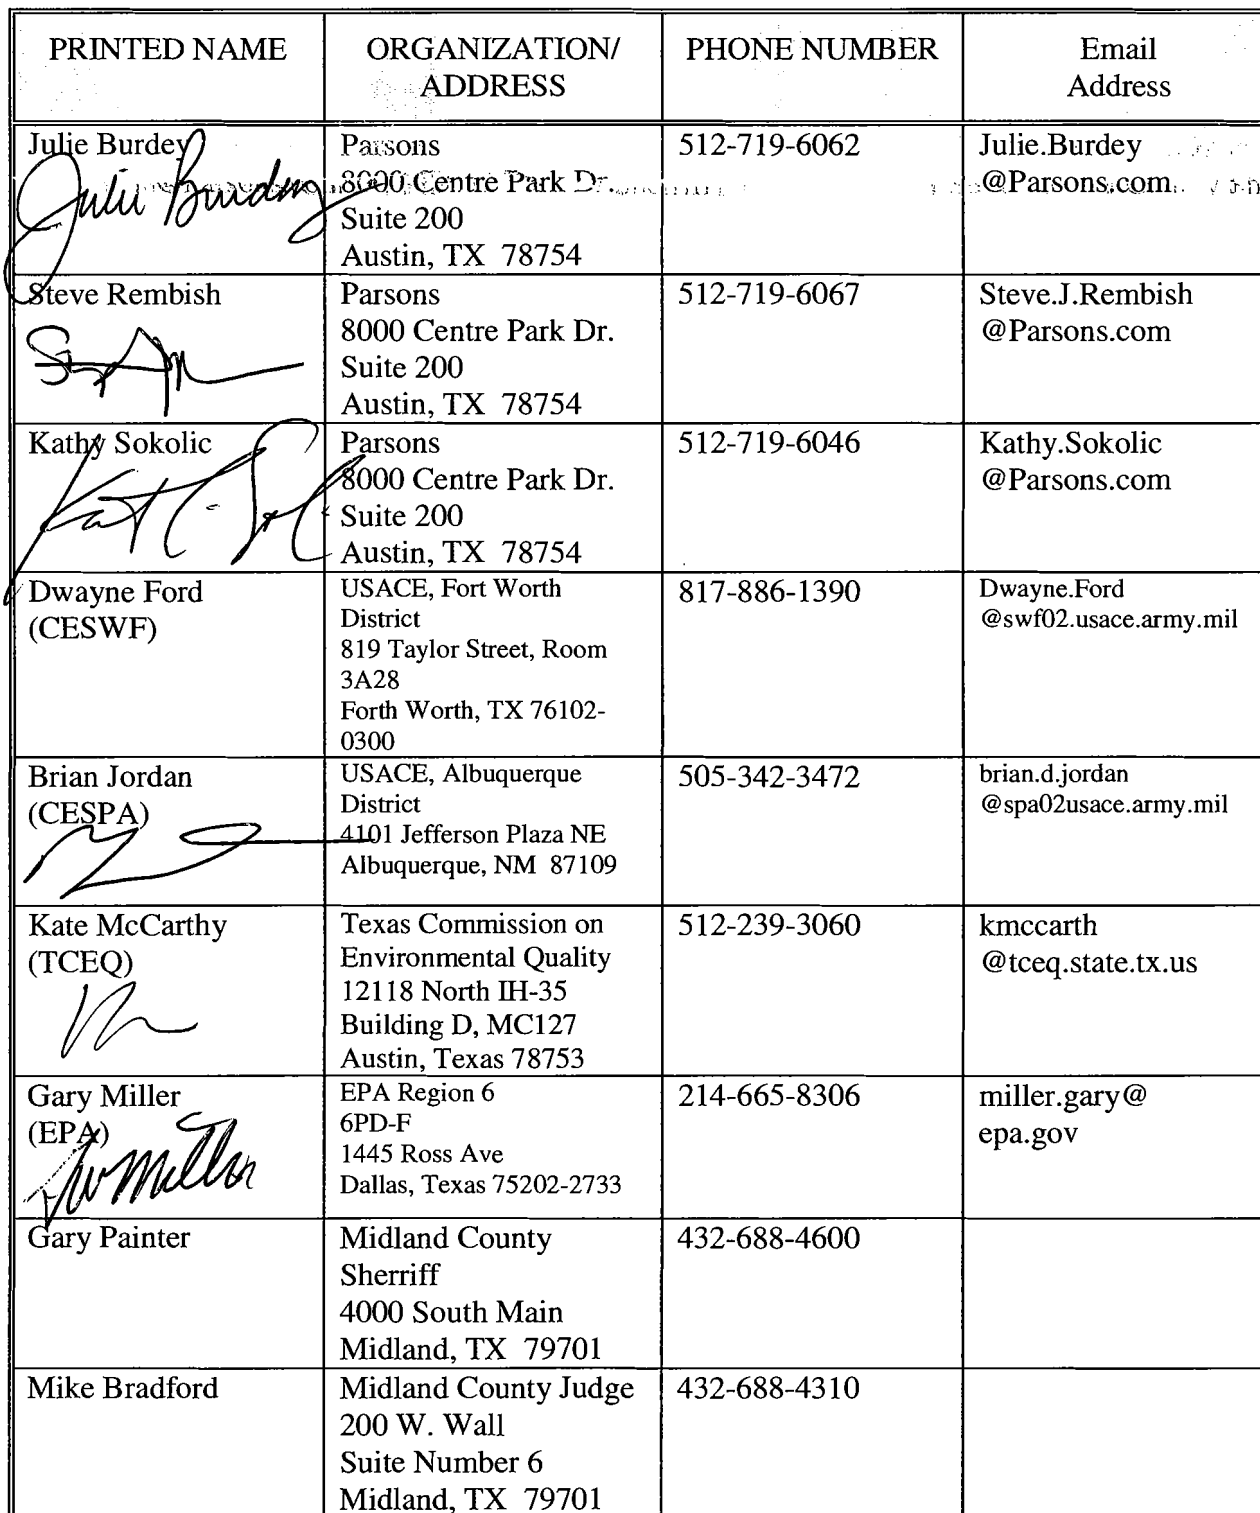 PRINTED NAME
ORGANIZATION/
ADDRESS
PHONE NUMBER
Email
Address
Julie Burdey
Julie Burdey
Parsons
8000 Centre Park Dr.
Suite 200
Austin, TX 78754
512-719-6062
Julie.Burdey
@Parsons.com
Steve Rembish
Parsons
8000 Centre Park Dr.
Suite 200
Austin, TX 78754
512-719-6067
Steve.J.Rembish
@Parsons.com
Kathy Sokolic
Parsons
8000 Centre Park Dr.
Suite 200
Austin, TX 78754
512-719-6046
Kathy.Sokolic
@Parsons.com
Dwayne Ford
(CESWF)
USACE, Fort Worth
District
819 Taylor Street, Room
3A28
Forth Worth, TX 76102-
0300
817-886-1390
Dwayne.Ford
@swf02.usace.army.mil
Brian Jordan
(CESPA)
USACE, Albuquerque
District
4101 Jefferson Plaza NE
Albuquerque, NM 87109
505-342-3472
brian.d.jordan
@spa02usace.army.mil
Kate McCarthy
(TCEQ)
Texas Commission on
Environmental Quality
12118 North IH-35
Building D, MC127
Austin, Texas 78753
512-239-3060
kmccarth
@tceq.state.tx.us
Gary Miller
(EPA)
Miller
EPA Region 6
6PD-F
1445 Ross Ave
Dallas, Texas 75202-2733
214-665-8306
miller.gary@
epa.gov
Gary Painter
Midland County
Sherriff
4000 South Main
Midland, TX 79701
432-688-4600
Mike Bradford
Midland County Judge
200 W. Wall
Suite Number 6
Midland, TX 79701
432-688-4310